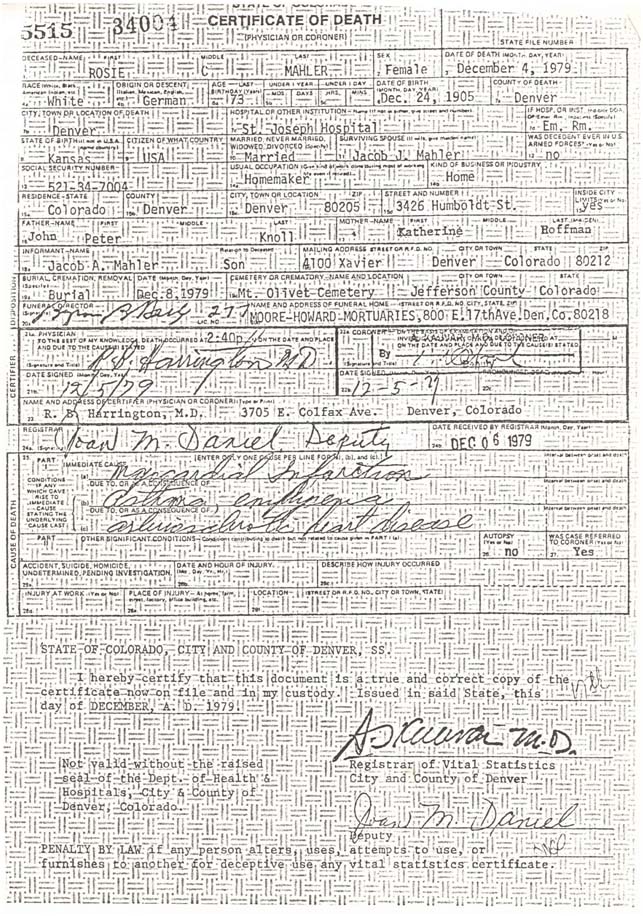 STATE OF COLORADO
5515 34004 CERTIFICATE OF DEATH
(PHYSICIAN OR CORONER)
STATE FILE NUMBER
DECEASED-NAME FIRST MIDDLE LAST SEX DATE OF DEATH (MONTH, DAY, YEAR)
ROSIE C MAHLER Female December 4, 1979
RACE ORIGIN OR DESCENT AGE-LAST BIRTHDAY (Years) UNDER 1 YEAR UNDER 1 DAY DATE OF BIRTH (MONTH, DAY, YEAR) COUNTY OF DEATH
MOS. DAYS HRS. MINS
White German 73 Dec. 24, 1905 Denver
CITY, TOWN OR LOCATION OF DEATH HOSPITAL OR OTHER INSTITUTION IF HOSP. OR INST.
Denver St. Joseph Hospital Em. Rm.
STATE OF BIRTH CITIZEN OF WHAT COUNTRY MARRIED NEVER MARRIED, WIDOWED, DIVORCED (Specify) SURVIVING SPOUSE WAS DECEDENT EVER IN U.S. ARMED FORCES?
Kansas USA Married Jacob J. Mahler no
SOCIAL SECURITY NUMBER USUAL OCCUPATION KIND OF BUSINESS OR INDUSTRY
521-34-7004 Homemaker Home
RESIDENCE-STATE COUNTY CITY, TOWN OR LOCATION ZIP STREET AND NUMBER INSIDE CITY LIMITS
Colorado Denver Denver 80205 3426 Humboldt St. yes
FATHER-NAME FIRST MIDDLE LAST MOTHER-NAME FIRST MIDDLE LAST
John Peter Knoll Katherine Hoffman
INFORMANT-NAME Relation to Deceased MAILING ADDRESS STREET OR R.F.D. NO. CITY OR TOWN STATE ZIP
Jacob A. Mahler Son 4100 Xavier Denver Colorado 80212
BURIAL, CREMATION, REMOVAL DATE (Month, Day, Year) CEMETERY OR CREMATORY-NAME AND LOCATION CITY OR TOWN STATE
Burial Dec. 8, 1979 Mt. Olivet Cemetery Jefferson County Colorado
FUNERAL DIRECTOR LIC. NO. NAME AND ADDRESS OF FUNERAL HOME (STREET OR R.F.D. NO. CITY, STATE, ZIP)
MOORE-HOWARD-MORTUARIES, 800 E. 17th Ave. Den. Co. 80218
DISPOSITION
21a. PHYSICIAN
TO THE BEST OF MY KNOWLEDGE, DEATH OCCURRED AT 2:40p. ON THE DATE AND PLACE AND DUE TO THE CAUSE(S) STATED
R. B. Harrington MD
22a. CORONER
ON THE DATE AND PLACE AND DUE TO THE CAUSE(S) STATED
By
DATE SIGNED DATE SIGNED
12/5/79 12-5-79
NAME AND ADDRESS OF CERTIFIER (PHYSICIAN OR CORONER) (Type or Print)
R. B. Harrington, M.D. 3705 E. Colfax Ave. Denver, Colorado
CERTIFIER
REGISTRAR DATE RECEIVED BY REGISTRAR (Month, Day, Year)
Joan M. Daniel Deputy DEC 06 1979
PART I IMMEDIATE CAUSE (ENTER ONLY ONE CAUSE PER LINE FOR (a), (b), and (c).)
CONDITIONS IF ANY WHICH GAVE RISE TO IMMEDIATE CAUSE STATING THE UNDERLYING CAUSE LAST
(a) Myocardial Infarction
DUE TO, OR AS A CONSEQUENCE OF
(b) asthma emphysema
DUE TO, OR AS A CONSEQUENCE OF
(c) arteriosclerotic heart disease
CAUSE OF DEATH
PART II OTHER SIGNIFICANT CONDITIONS AUTOPSY (Yes or No) WAS CASE REFERRED TO CORONER (Yes or No)
no Yes
ACCIDENT, SUICIDE, HOMICIDE, UNDETERMINED, PENDING INVESTIGATION DATE AND HOUR OF INJURY DESCRIBE HOW INJURY OCCURRED
INJURY AT WORK (Yes or No) PLACE OF INJURY LOCATION (STREET OR R.F.D. NO., CITY OR TOWN, STATE)
STATE OF COLORADO, CITY AND COUNTY OF DENVER, SS.
I hereby certify that this document is a true and correct copy of the
certificate now on file and in my custody. Issued in said State, this
day of DECEMBER, A. D. 1979.
M.D.
Not valid without the raised
seal of the Dept. of Health &
Hospitals, City & County of
Denver, Colorado.
Registrar of Vital Statistics
City and County of Denver
Joan M. Daniel
Deputy
PENALTY BY LAW if any person alters, uses, attempts to use, or
furnishes to another for deceptive use any vital statistics certificate.